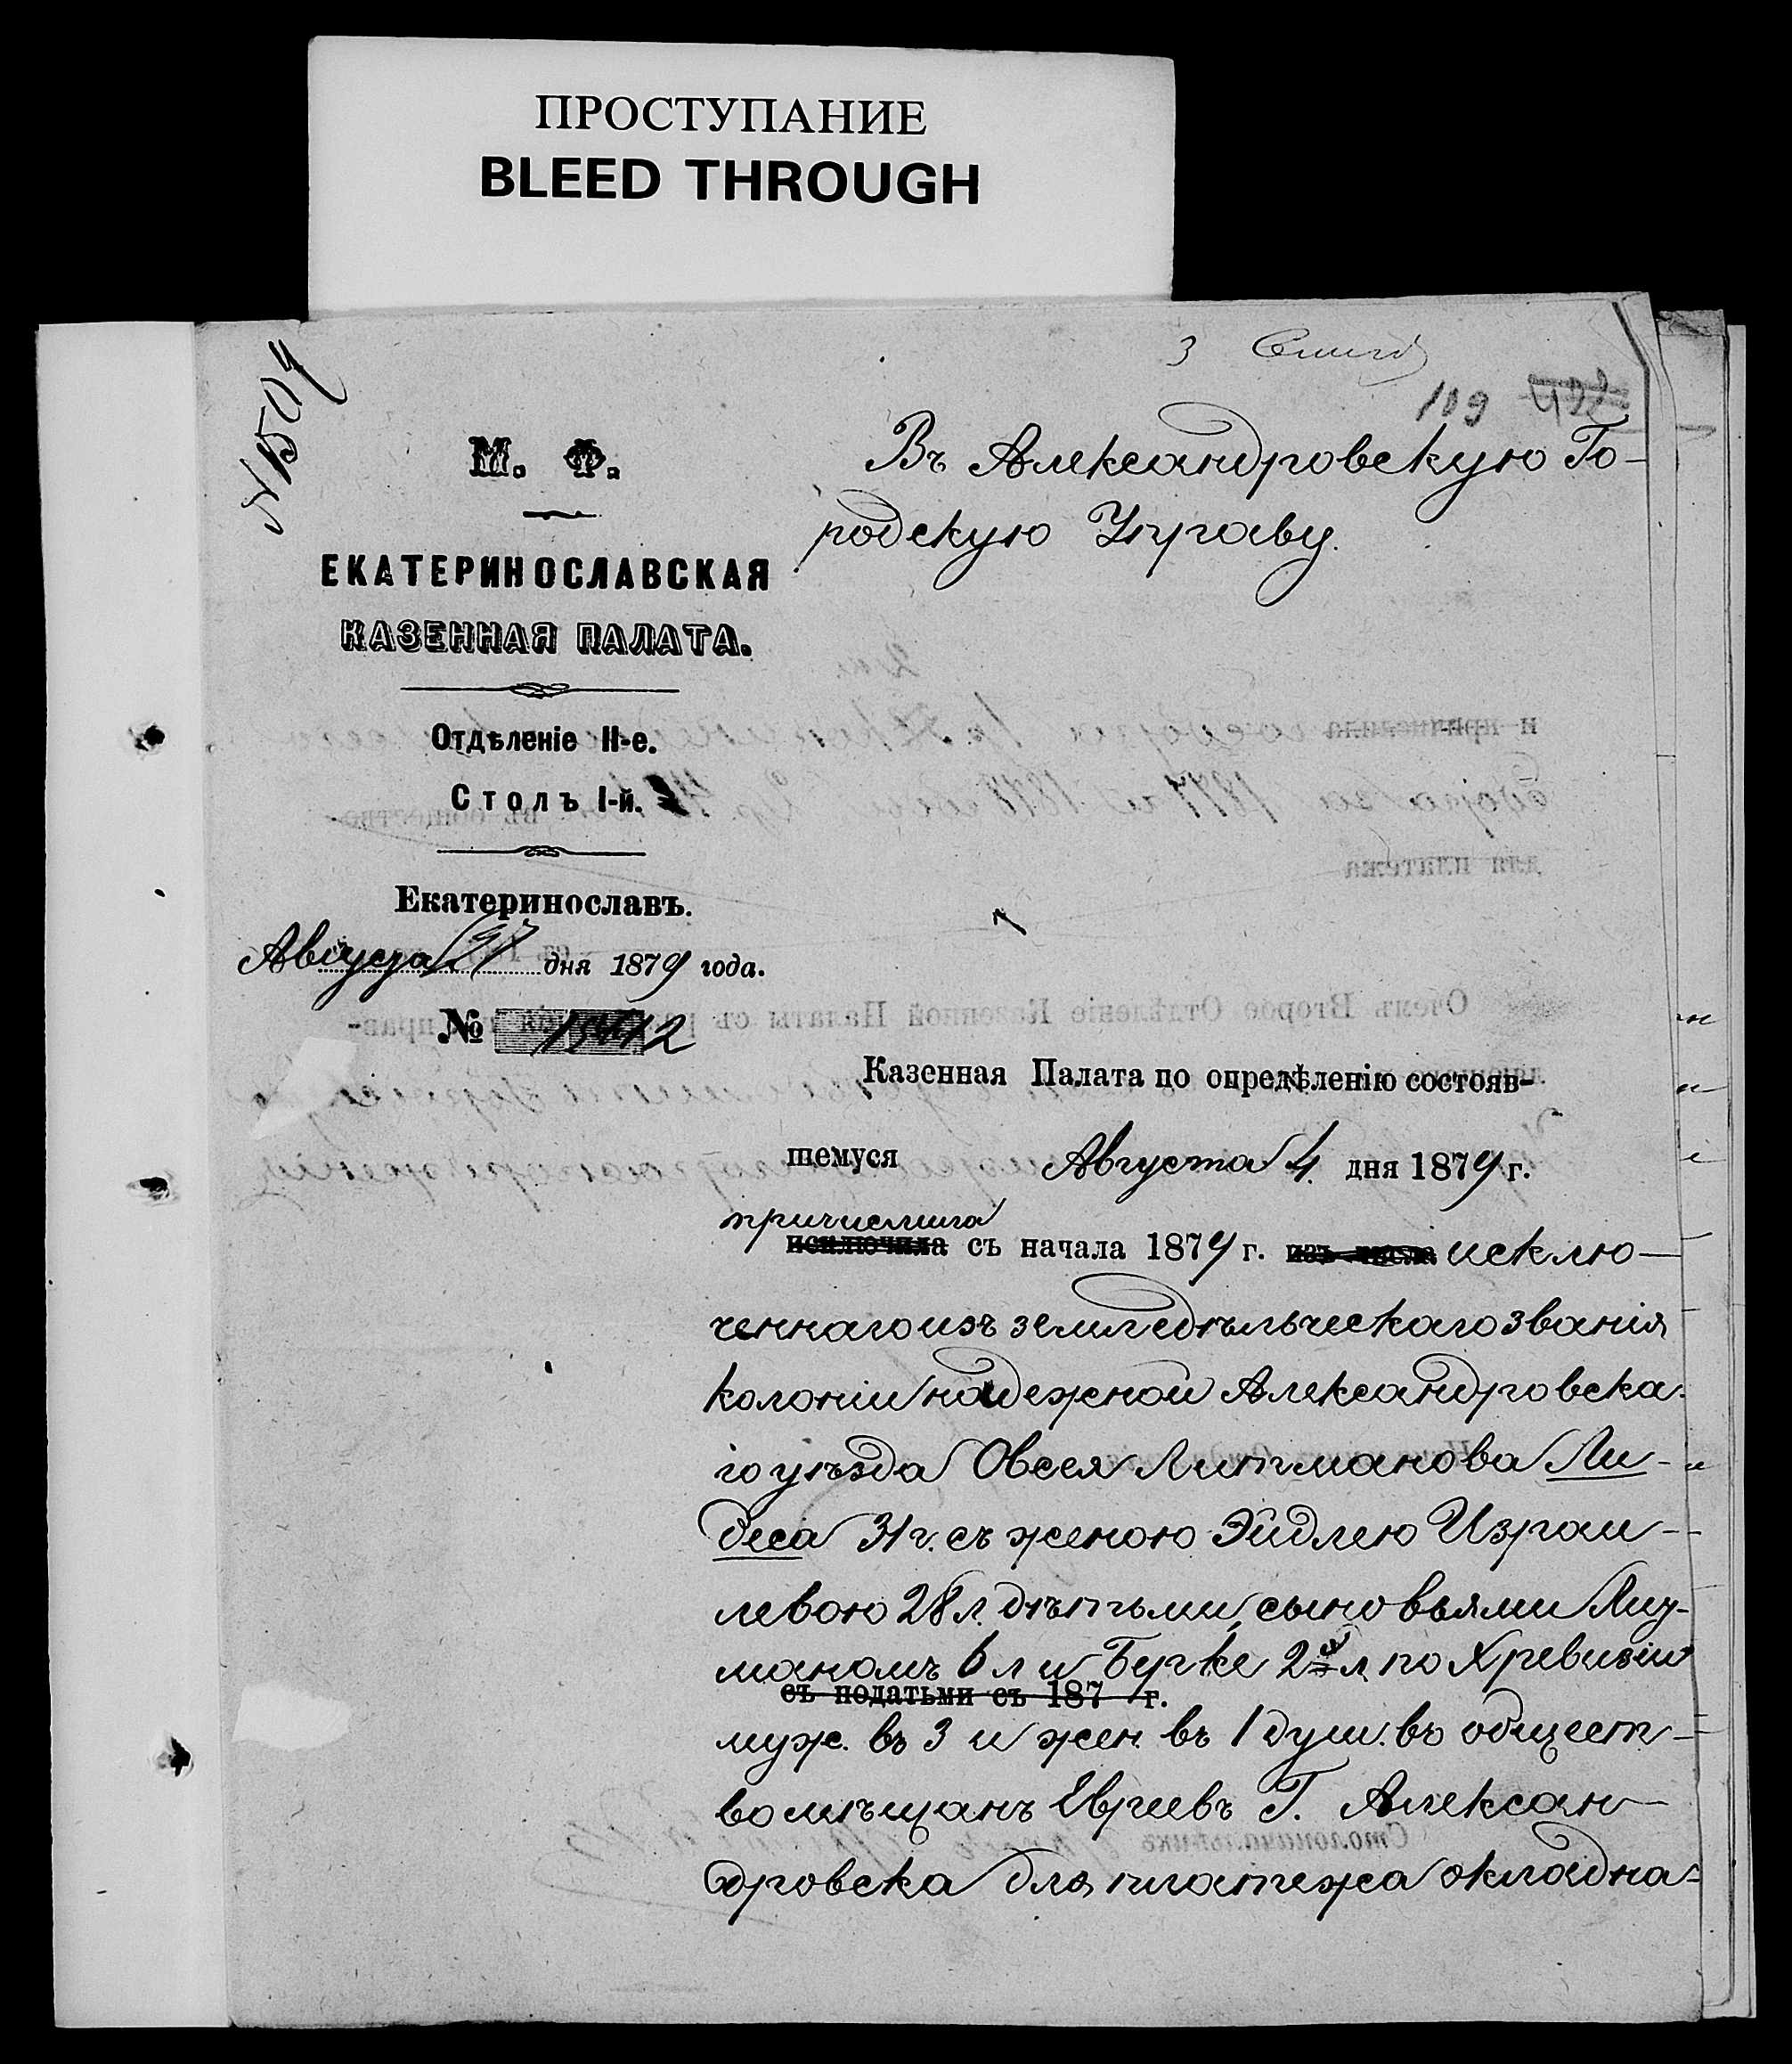 ПРОСТУПАНИЕ
BLEED THROUGH
3
109
М. Ф.
ЕКАТЕРИНОСЛАВСКАЯ
КАЗЕННАЯ ПАЛАТА.
Отдѣленіе II-е.
Столъ I-й.
Екатеринославъ.
Августа 27 дня 1879 года.
№
Въ Александровскую Го-
родскую Управу.
Казенная Палата по опредѣленію состояв-
шемуся Августа 4 дня 1879 г.
причислила
исключила съ начала 1879 г. изъ числа исклю-
ченнаго изъ земледѣльческаго званія
колоніи Надежной Александровска-
го уѣзда Овсея Липманова Ли-
беса 31 г. съ женою Эйдлею Израи-
левою 28 л. дѣтьми, сыновьями
маномъ 6 л и Берке 2 л, по X ревизіи
съ податьми съ 187 г.
муж. въ 3 и жен. въ 1 душ. въ общест-
во мѣщанъ Евреевъ Г. Алексан-
дровска для платежа окладна-